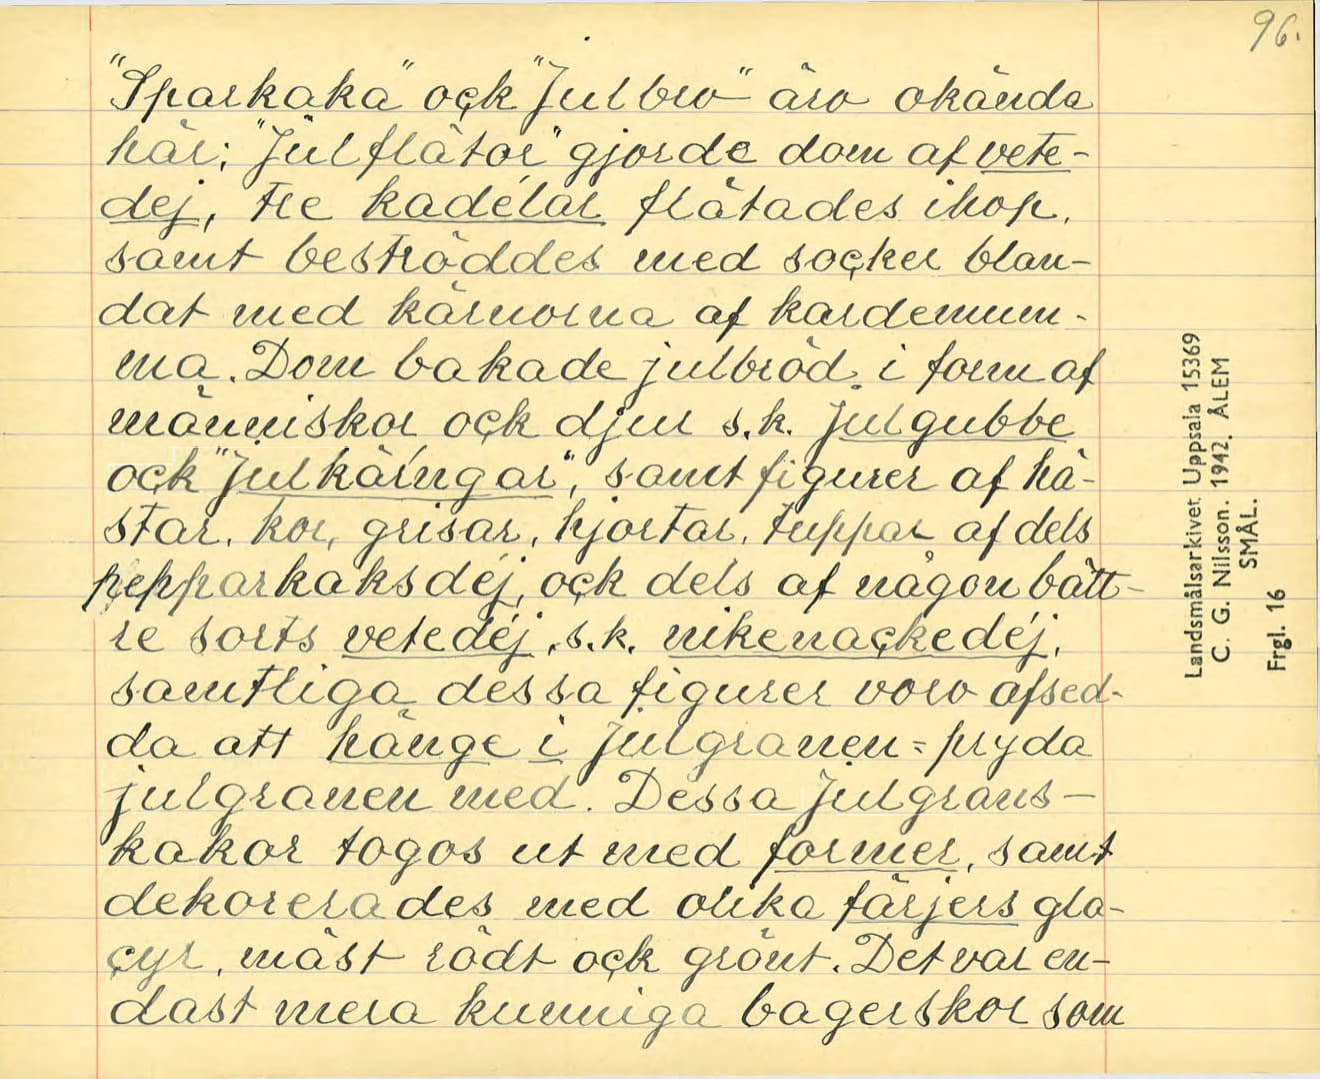 96.
"Sparkaka" oçk "Julbro" äro okända
här; "Julflätor" gjorde dom af vete-
dej, tre kadélar flätades ihop,
samt beströddes med soçker blan-
dat med kärnorna af kardemum-
ma. Dom bakade julbröd i form af
människor oçk djur s.k. julgubbe
oçk "julkärngar", samt figurer af hä-
star, kor, grisar, hjortar, tuppar af dels
pepparkaksdéj, oçk dels af någon bätt-
re sorts vetedéj, s.k. nikenaçkedéj,
samtliga dessa figurer voro afsed-
da att hänge i julgranen = pryda
julgranen med. Dessa julgrans-
kakor togos ut med former, samt
dekorerades med olika färjers gla-
çyr, mäst rödt oçk grönt. Det var en-
dast mera kunniga bagerskor som
Landsmålsarkivet Uppsala 15369
C. G. Nilsson. 1942. ÅLEM
SMÅL.
Frgl. 16